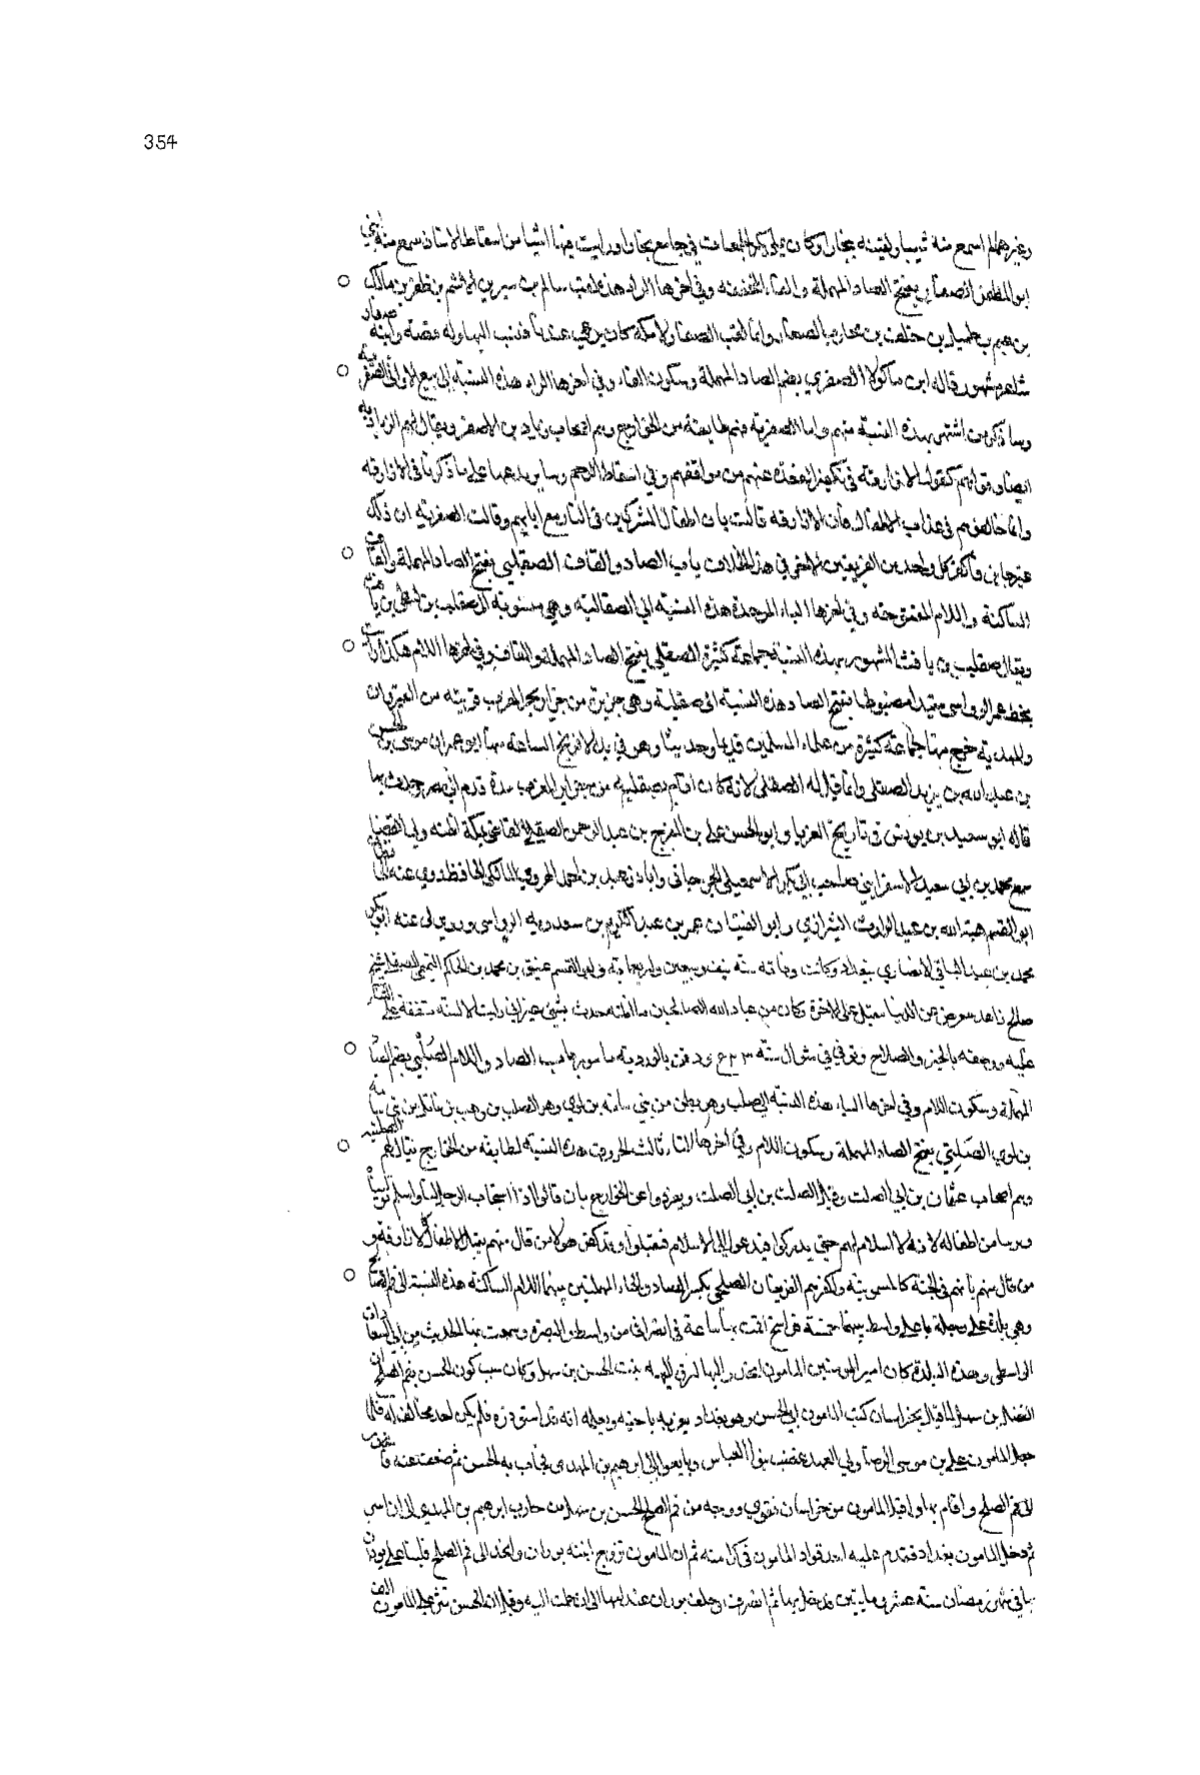 354
وغيرهما لم اسمع منه شيا ولقيته ببخارا وكان يملي بكر الجمعات في جامع بخارا ورايت فيها اشيا من اسقاط الاسنان سمع منه ابني
ابو المظفر الصفار بفتح الصاد المهملة والفاء المخففة وفي اخرها الراء هذا لقب سالم بن سير بن هاشم بن ظفر بن مالك
بن غنم بن خلف بن محارب الصفار وانما لقب الصفار لانه كان يرعى عند فنسب اليها وله قصة وابنه صفار
شاعر مشهور قاله ابن ماكولا الصفري بضم الصاد المهملة وسكون الفاء وفي اخرها الراء هذه النسبة الى
وسا ذكر من اشتهر بهذه النسبة منهم واما الصفرية فهم طايفة من الخوارج وهم اصحاب زياد بن الاصفر ويقال لهم الزيادية
ايضا وقولهم كقول الازارقة في تكفير القعدة عنهم من موافقيهم وفي اسقاط الرجم وسايربدعها على ما ذكرنا في الازارقة
وانما خالفوهم في عذاب الاطفال فان الازارقة قالت بان اطفال المشركين في النار مع ابايهم وقالت الصفرية ان ذلك
غير جاين واكفر كل واحد من الفريقين الاخر في هذا الخلاف باب الصاد والقاف الصقلبي بفتح الصاد المهملة والقاف
الساكنة واللام المفتوحة وفي اخرها الباء الموحدة هذه النسبة الى الصقالبة وهي منسوبة الى صقلب بن لنطي بن يافث
ويقال صقلب بن يافث المشهور بهذه النسبة جماعة كثيرة الصقلي بفتح الصاد المهملة والقاف وفي اخرها اللام هكذا رايت
بخط عمر الرواسي مقيدا مضبوطا بفتح الصاد هذه النسبة الى صقلية وهي جزيرة من جزاير بحر المغرب قريبة من القيروان
والمهدية خرج منها جماعة كثيرة من علماء المسلمين قديما وحديثا وهو في يد الافرنج الساعة منها ابو عمران موسى بن الحسن
بن عبد الله بن يزيد الصقلي وانما قيل له الصقلي لانه كان اقام بصقلية من جزاير المغرب مدة قدم الى مصر وحدث بها
قاله ابو سعيد بن يونس في تاريخ الغربا وابو الحسن علي بن المفرج بن عبد الرحمن الصقلي القاضي بمكة اظنه ولي القضا بها
سمع محمد بن ابي سعيد الاسفرايني صاحب ابي بكر الاسمعيلي الجرجاني واباذر عبد بن احمد الهروي المالكي الحافظ روى عنه
ابو القسم هبة الله بن عبد الوارث الشيرازي وابو الفتيان عمر بن عبد الكريم بن سعدويه الرواسي وروى لي عنه ابو بكر
محمد بن عبد الباقي الانصاري ببغداد وكانت وفاته سنة نيف وسبعين واربعماية وابو القسم عتيق بن محمد بن الحاكم التميمي الصقلي شيخ
صالح زاهد معرض عن الدنيا مقبل على الاخرة وكان من عباد الله الصالحين ما اظنه حدث بشي غير اني رايت الالسنة متفقة على الثنا
عليه ووصفه بالخير والصلاح وتوفي في شوال سنة ودفن بالوردية باب الصاد واللام الصلبي بضم الصاد
المهملة وسكون اللام وفي اخرها الباء هذه النسبة الى صلب وهو بطن من بني سامة بن لوي وهو الصلب بن وهب بن ناتل بن بني سامة
بن لوي الصلتي بفتح الصاد المهملة وسكون اللام وفي اخرها التاء ثالث الحروف هذه النسبة لطايفة من الخوارج يقال لهم الصلتية
وهم اصحاب عثمان بن ابي الصلت وقيل الصلت بن ابي الصلت وتفردوا عن الخوارج بان قالوا اذا استجاب الرجل لنا واسلم توليناه
وبرينا من اطفاله لانه لا اسلام لهم حتى يدركوا فيدعوا الى الاسلام فيقبلوا وتكفر هولا من قال منهم بقتال الاطفال كالازارقة و
من قال منهم بانهم في الجنة كالميمونية واكفرهم الفريقان الصلحي بكسر الصاد والحاء المهملتين بينهما اللام الساكنة هذه النسبة الى فم الصلح
وهي بلدة على دجلة باعلى واسط بينهما خمسة فراسخ اقمت بها ساعة في انحداري من واسط الى البصرة وسمعت بها الحديث من ابي السعادات
الواسطي وبهذه البلدة كان امير المومنين المامون انحدر اليها لزفاف بنت الحسن بن سهل وكان سبب كون الحسن بفم الصلح ان
الفضل بن سهل لما قتل بخراسان كتب المامون الى الحسن وهو ببغداد يعزيه باخيه ويعلمه انه قد استوزره فلم يكن احد يخالفه فلما
جعل المامون علي بن موسى الرضا ولي العهد غضب بنو العباس وبايعوا ابراهيم بن المهدي فحارب به الحسن ثم ضعف عنه فانحدر
الى فم الصلح واقام بها وقبل المامون من خراسان فقوي ووجه من فم الصلح الحسن بن سهل من حارب ابراهيم بن المهدي
ثم دخل المامون بغداد فقدم عليه احد قواد المامون في كل سنة ثم ان المامون تزوج ابنته بوران وانحدر الى فم الصلح فلبنا على بوران
بها في شهر رمضان سنة عشر ومايتين فدخل بها ثم انصرف وخلف بوران عند امها الى ان حملت اليه وقيل ان الحسن نثر على المامون الف